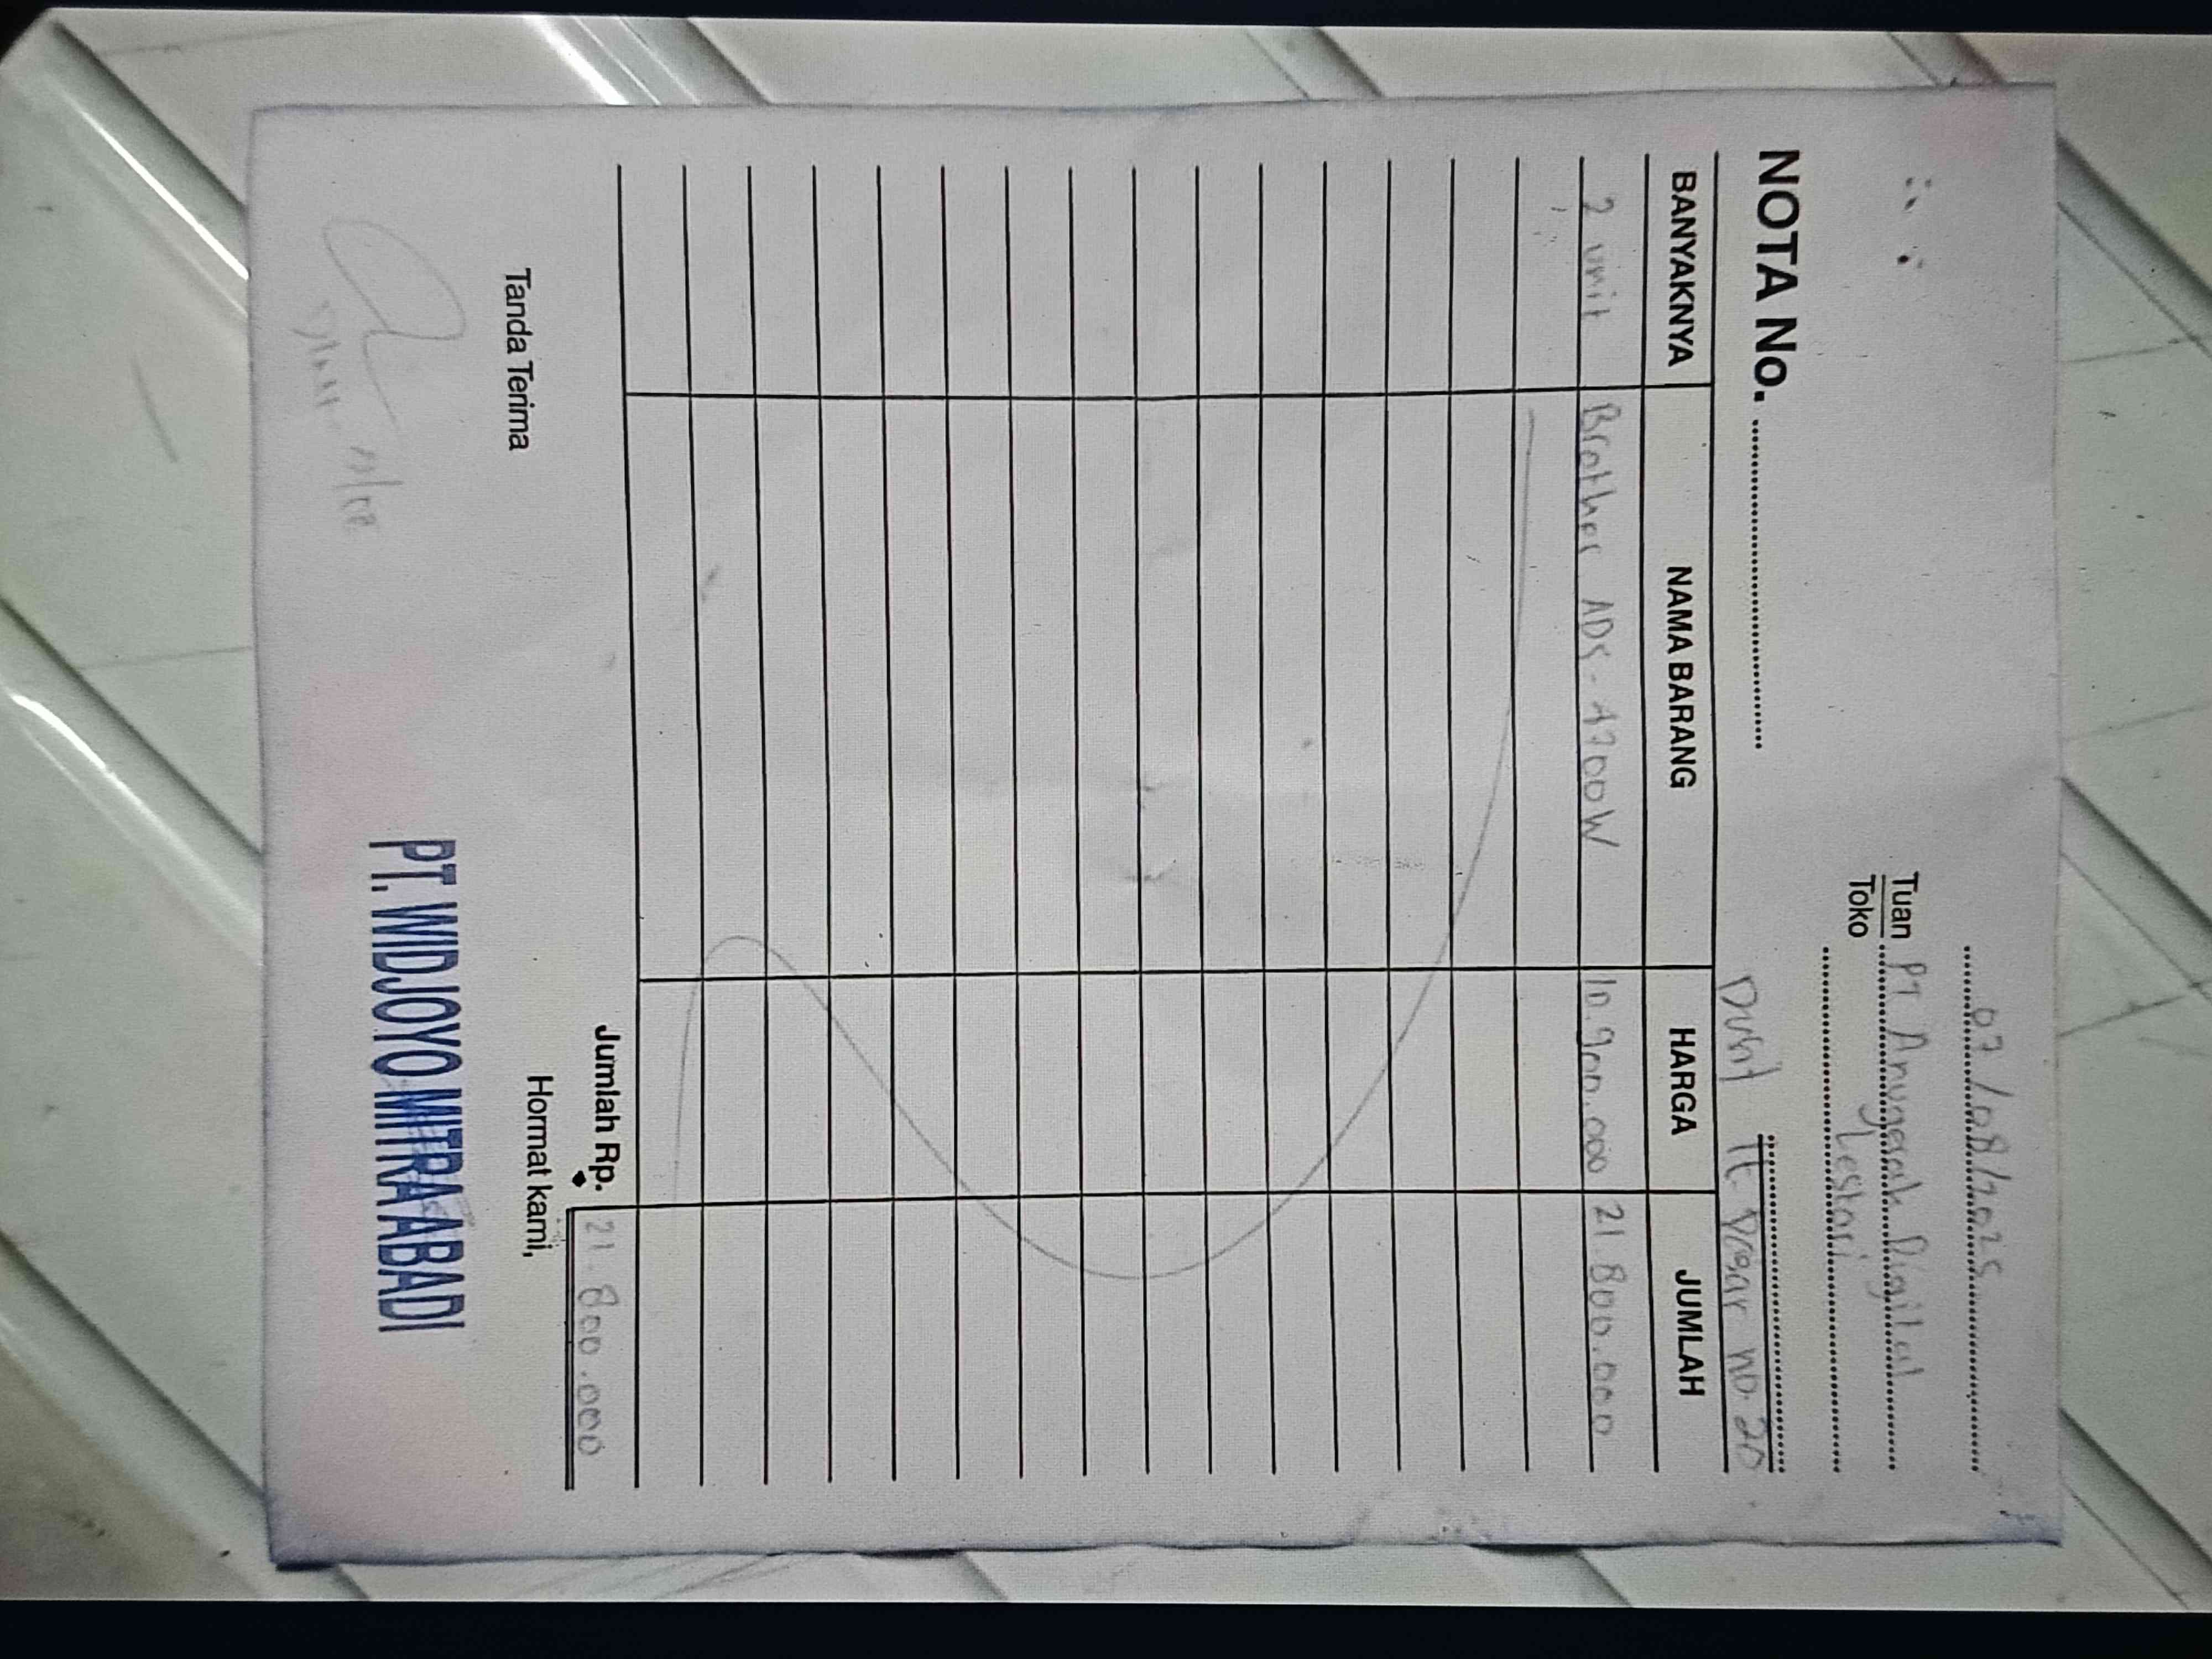 07/08/2025
Tuan PT Anugerah Digital
Toko Lestari
NOTA No.
Duri TE. Dasar no. 20
BANYAKNYA NAMA BARANG HARGA JUMLAH
2 unit Brother ADS-4700W 10.900.000 21.800.000
Jumlah Rp. 21.800.000
Tanda Terima Hormat kami,
PT. WIDJOYO MITRA ABADI